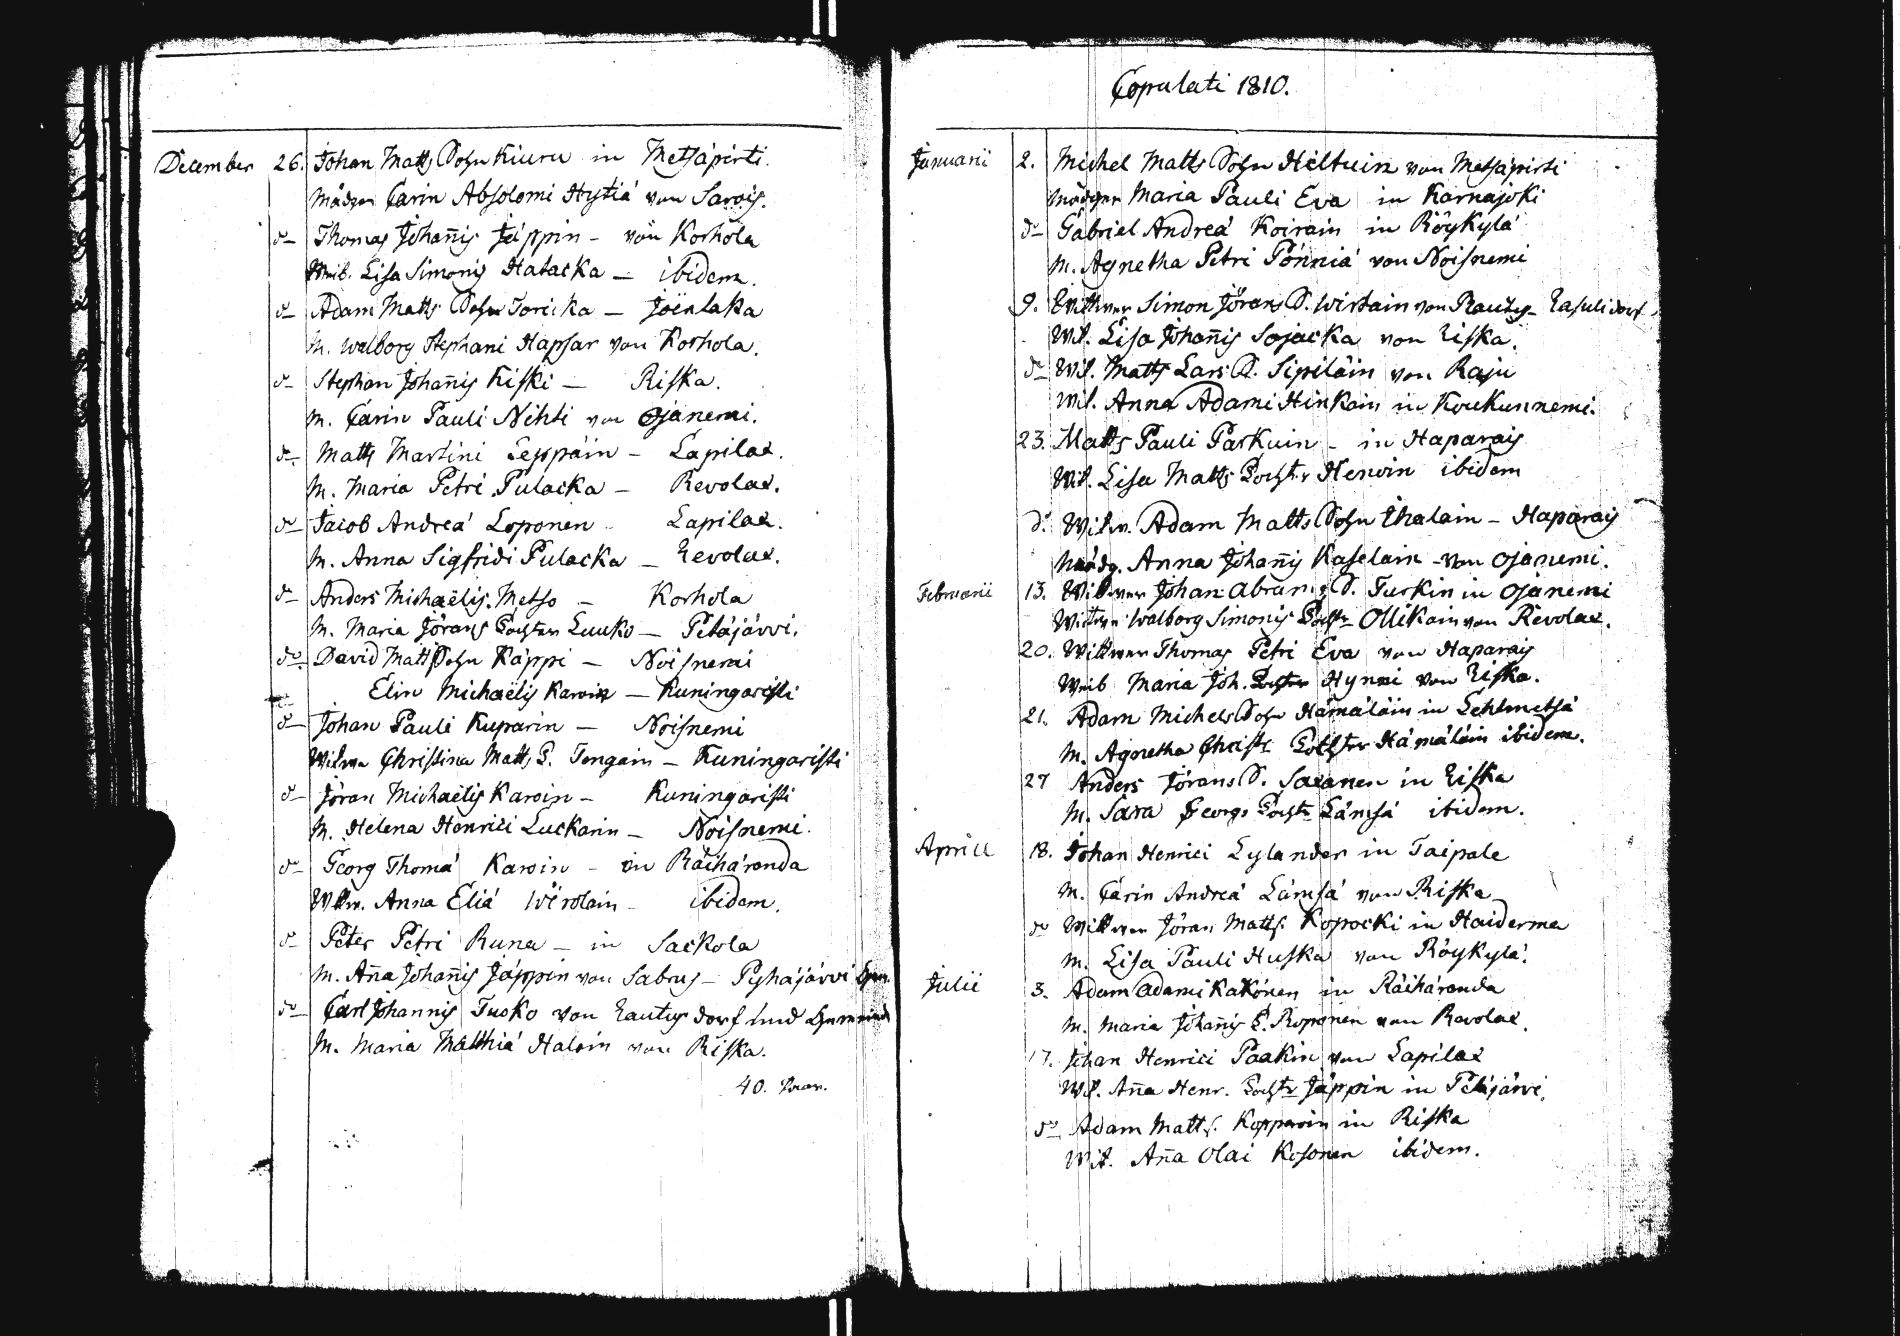 December 26. Johan Matts Sohn Kiuru in Metsäpirti.
Mädgen Carin Absolomi Hytiä von Sarois.
do Thomas Johan̄is Jäppin – von Korhola
Weib. Lisa Simonis Hatacka – ibidem.
do Adam Matts Sohn Torcika – Joenlaka
M. Walborg Stephani Hapsar von Korhola.
do Stephan Johan̄is Kiski – Riska.
M. Carin Pauli Nihti von Ojanemi.
do Matts Martini Seppäin – Lapilax.
M. Maria Petri Pulacka – Revolax.
do Jacob Andreä Loponen Lapilax.
M. Anna Sigfridi Pulacka – Revolax.
do Anders Michaëlis Metso – Korhola
M. Maria Jörans Tochter Luuko – Petäjärvi.
do David Matts Sohn Käppi – Noisnemi
Elin Michaëlis Karvin – Kuningaristi
do Johan Pauli Kuparin – Noisnemi
Witwe Christina Matts T. Tengain – Kuningaristi
do Jöran Michaëlis Karvin – Kuningaristi
M. Helena Henrici Luckarin – Noisnemi.
do Georg Thomä Karvin – in Räihäranda
Wttw. Anna Eliä Wirolain – ibidem.
do Peter Petri Runa – in Sackola
M. An̄a Johan̄is Jäppin von Sabrus – Pyhäjärvi Gem.
do Carl Johannis Tusko von Rautus dorf und Gemeinde
M. Maria Matthiä Haloin von Riska.
40. Paar.
Copulati 1810.
Januarii 2. Michel Matts Sohn Hiltuin von Metsäpirti
Mädgen Maria Pauli Eva in Karnajoki
do Gabriel Andreä Koirain in Röykylä
M. Agnetha Petri Pönniä von Noisnemi
9. Wittwer Simon Jörans S. Wirtain von Rautus – Rasuli dorf
Wit. Lisa Johan̄is Sojacka von Riska.
do Wit. Matts Lars S. Sipiläin von Raju
Wit. Anna Adami Hinkain in Koukunnemi.
23. Matts Pauli Parkuin – in Haparais
Wit. Lisa Matts Tochtr Henvin ibidem
do Witw. Adam Matts Sohn Ihalain – Haparais
Mädg. Anna Johan̄is Kaselain – von Ojanemi.
Februarii 13. Wittwer Johan Abrams S. Turkin in Ojanemi
Witwe Walborg Simonis Tochtr Ollikain von Revolax.
20. Wittwer Thomas Petri Eva von Haparais
Weib Maria Joh. Tochter Hynni von Riska.
21. Adam Michels Sohn Hämäläin in Lehtmetsä
M. Agnetha Christ. Tochter Hämäläin ibidem.
27 Anders Jörans S. Saxanen in Riska
M. Sara Georgs Tochtr Lämsä ibidem.
Aprill 18. Johan Henrici Lylander in Taipale
M. Carin Andreä Lämsä von Riska
do Wittwer Jöran Matts. Kopocki in Haiderma
M. Lisa Pauli Huska von Röykylä.
Julii 3. Adam Adami Kakonen in Räihäranda
M. Maria Johan̄is T. Roponen von Revolax.
17. Johan Henrici Paakin von Lapilax
Wit. An̄a Henr. Tochtr Jäppin in Petäjärvi.
do Adam Matts. Kopparoin in Riska
Wit. An̄a Olai Kosonen ibidem.